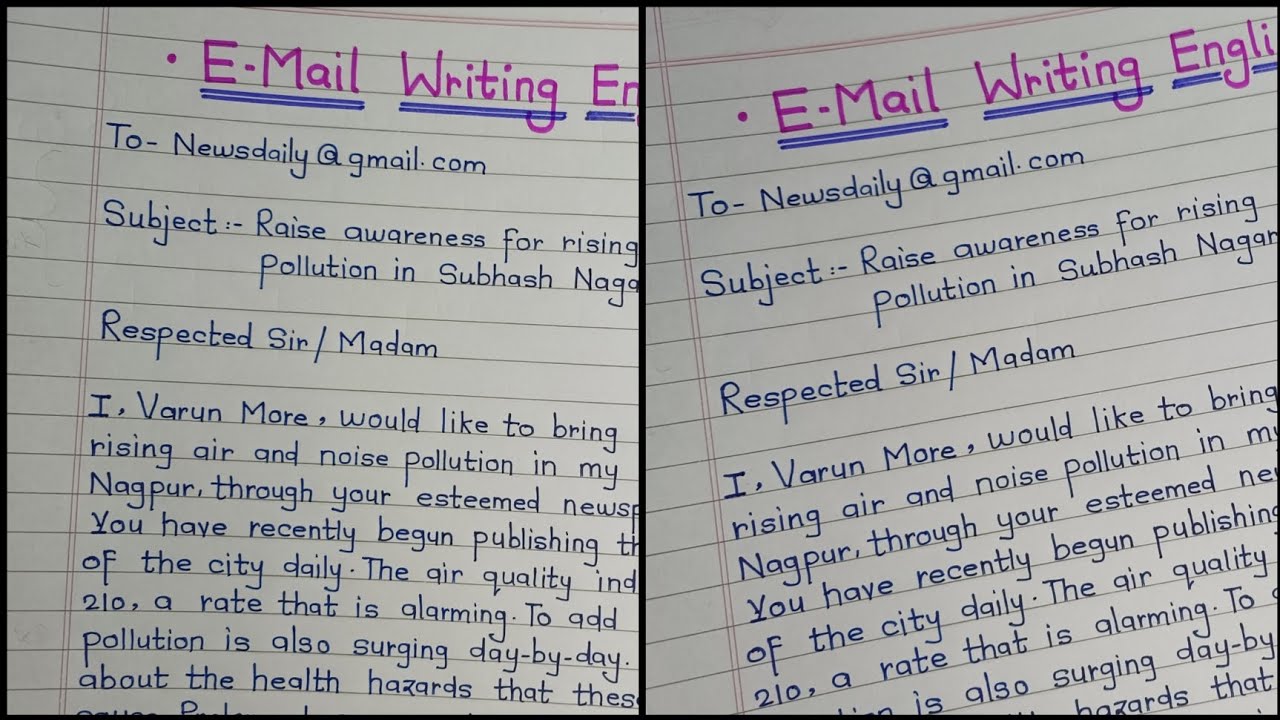 • E-Mail Writing En
To- Newsdaily@gmail.com
Subject:- Raise awareness for rising
Pollution in Subhash Naga
Respected Sir/Madam
I, Varun More, would like to bring
rising air and noise pollution in my
Nagpur, through your esteemed newsp
You have recently begun publishing th
of the city daily. The air quality ind
210, a rate that is alarming. To add
pollution is also surging day-by-day.
about the health hazards that thes
• E-Mail Writing Engli
To- Newsdaily@gmail.com
Subject:- Raise awareness for rising
Pollution in Subhash Nagar
Respected Sir/Madam
I, Varun More, would like to bring
rising air and noise pollution in my
Nagpur, through your esteemed ne
You have recently begun publishing
of the city daily. The air quality
210, a rate that is alarming. To
is also surging day-by
hazards that